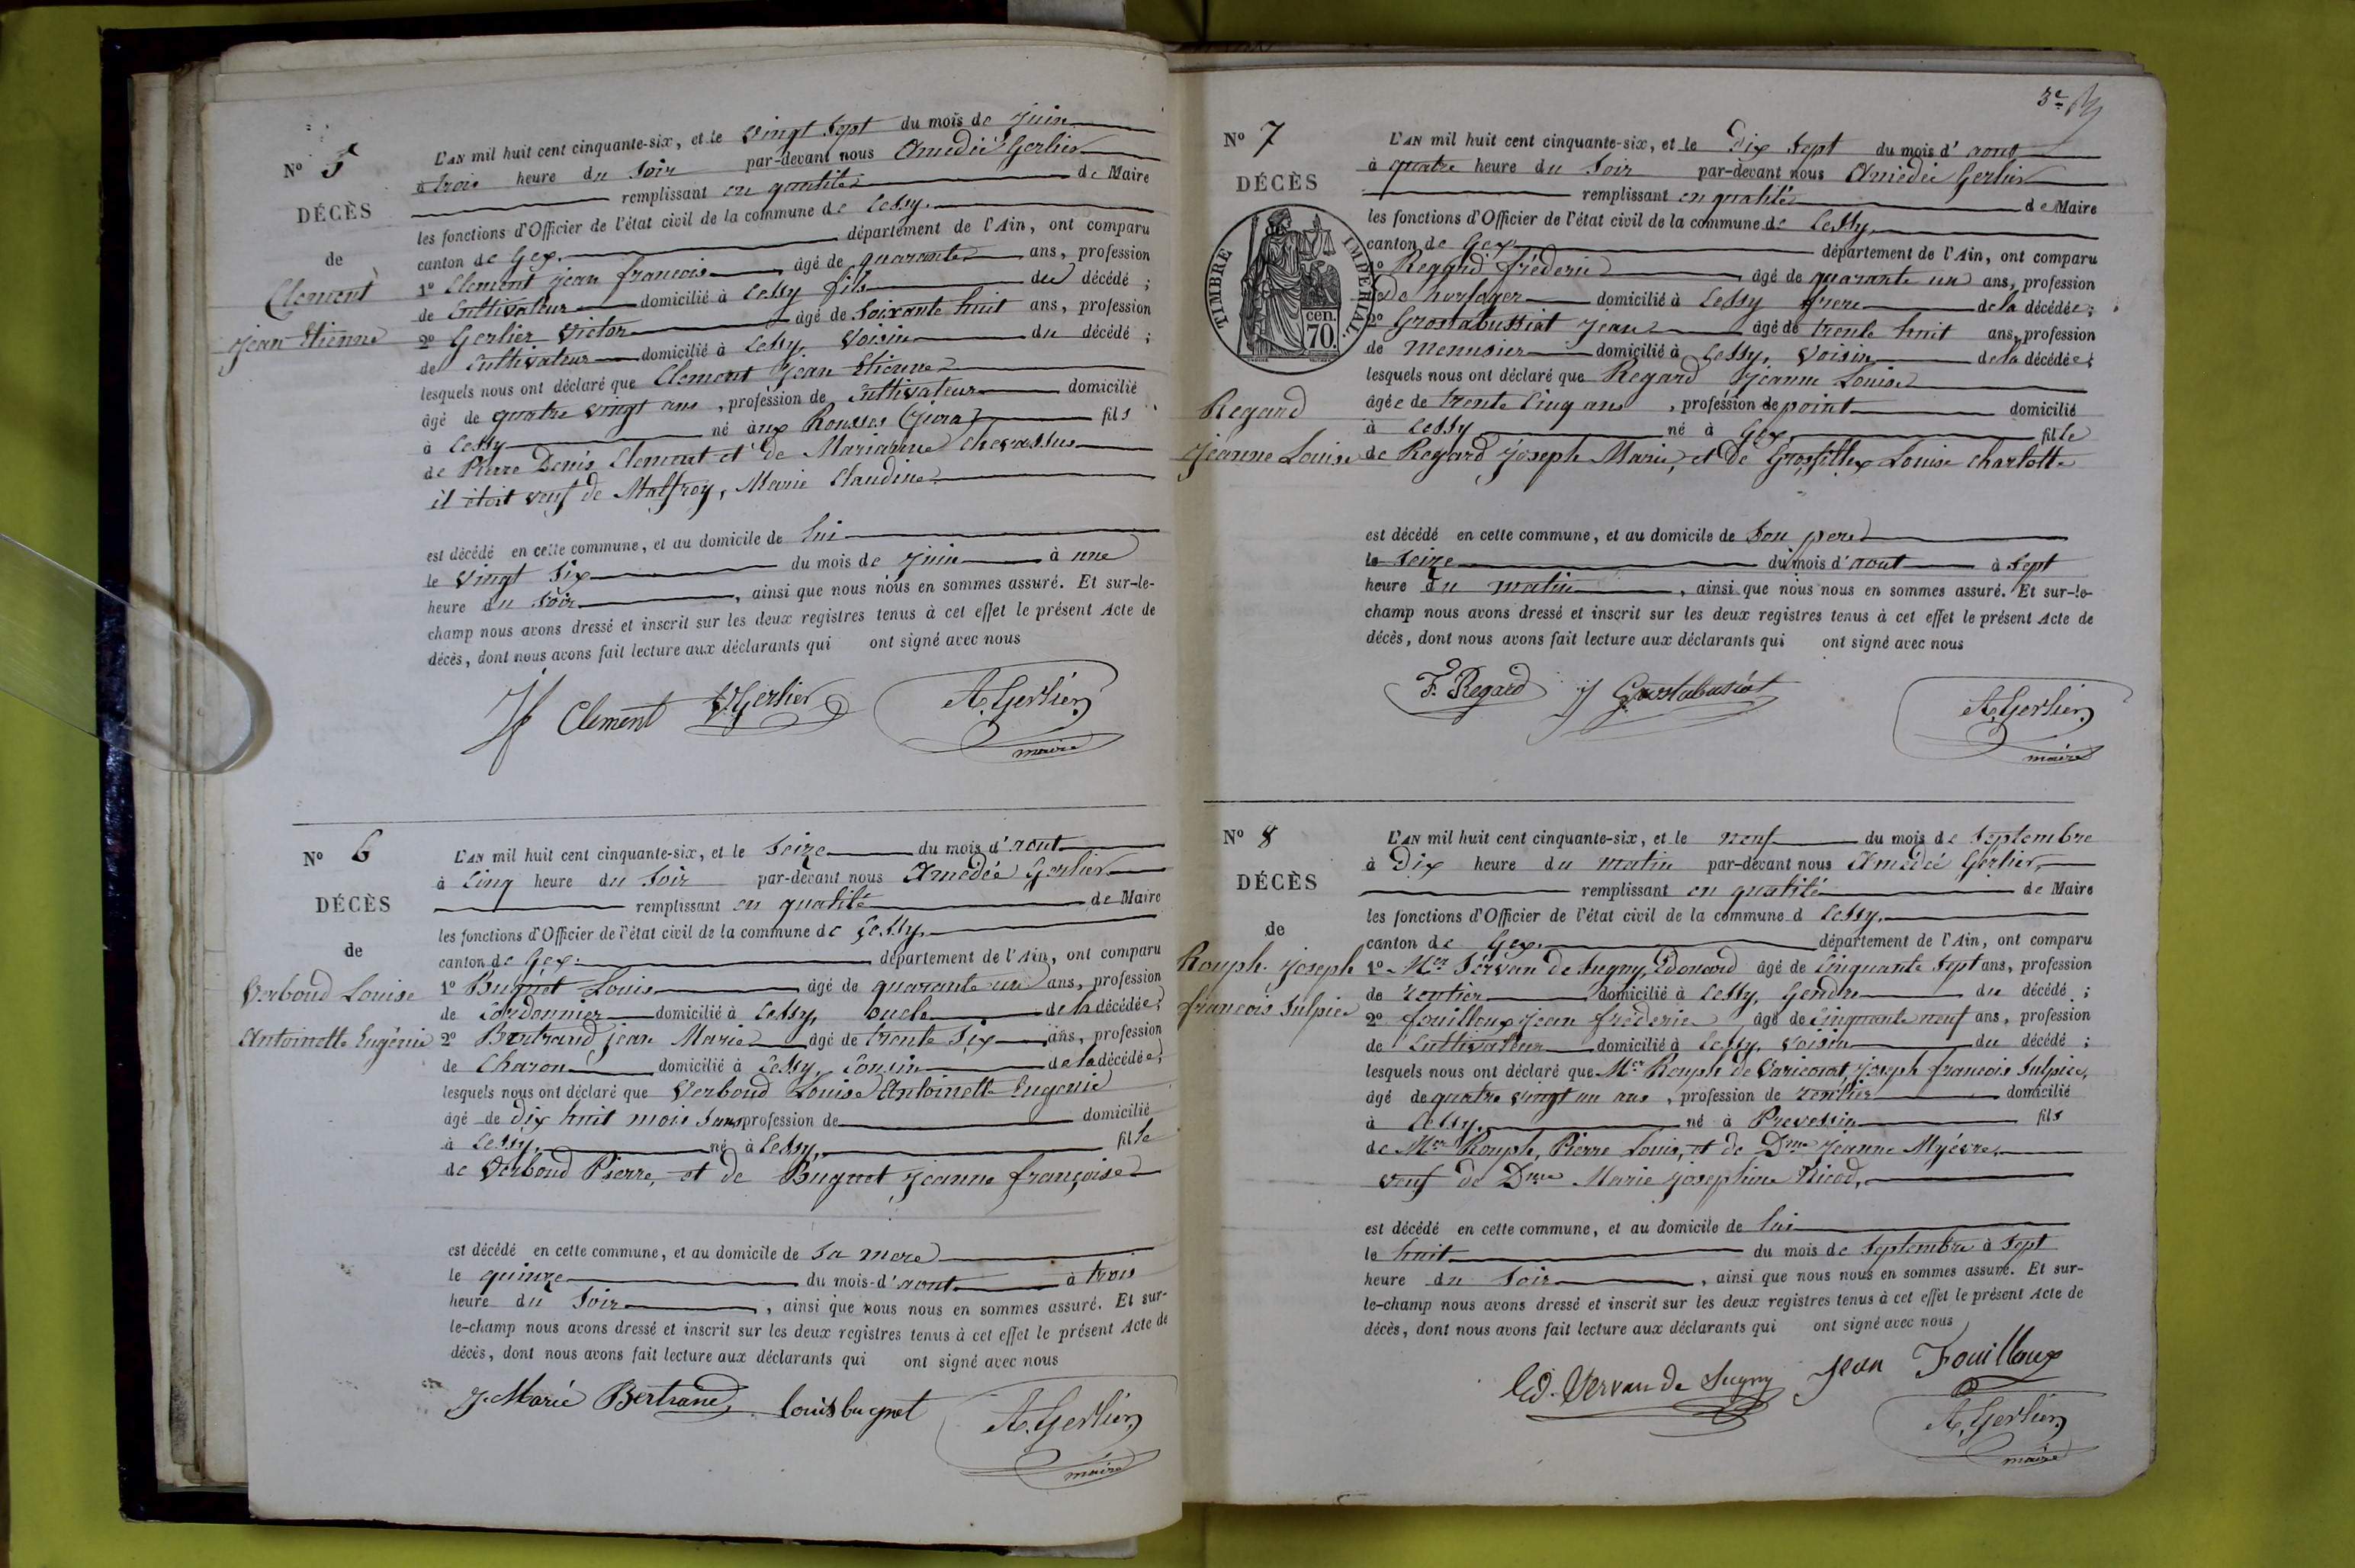 N° 5
DÉCÈS
de
Clement
jean Etienne
L'AN mil huit cent cinquante-six, et le vingt sept du mois de juin
à trois heure du soir par-devant nous Amédeé Gerlier
remplissant en qualité de Maire
les fonctions d'Officier de l'état civil de la commune de Cessy.
canton de Gex. département de l'Ain, ont comparu
1° Clement jean francois âgé de quarante ans, profession
de Cultivateur domicilié à Cessy fils du décédé ;
2° Gerlier Victor âgé de soixante huit ans, profession
de Cultivateur domicilié à Cessy, Voisin du décédé ;
lesquels nous ont déclaré que Clement Jean Etienne
âgé de quatre vingt ans, profession de Cultivateur domicilié
à Cessy né aux Rousses (jura) fils
de Pierre Denis Clement et de Marianne Chevassus
il étoit veuf de Malfroy, Marie Claudine
est décédé en cette commune, et au domicile de lui
le vingt six du mois de juin à une
heure du soir, ainsi que nous nous en sommes assuré. Et sur-le-
champ nous avons dressé et inscrit sur les deux registres tenus à cet effet le présent Acte de
décès, dont nous avons fait lecture aux déclarants qui ont signé avec nous
Jf Clement VGerlier A. Gerlier
maire
N° 6
DÉCÈS
de
Verboud Louise
Antoinette Eugénie
L'AN mil huit cent cinquante-six, et le seize du mois d'aout
à Cinq heure du soir par-devant nous Amédée Gerlier
remplissant en qualité de Maire
les fonctions d'Officier de l'état civil de la commune de Cessy.
canton de Gex. département de l'Ain, ont comparu
1° Buguet Louis âgé de quarante un ans, profession
de Cordonnier domicilié à Cessy, oncle de la décédée ;
2° Bertrand jean Marie âgé de trente six ans, profession
de Charon domicilié à Cessy, Cousin de la décédée ;
lesquels nous ont déclaré que Verboud Louise Antoinette Eugenie
âgé de dix huit mois sans profession de domicilié
à Cessy, né à Cessy, fille
de Verboud Pierre, et de Buguet jeanne françoise
est décédé en cette commune, et au domicile de sa mere
le quinze du mois d'aout à trois
heure du soir, ainsi que nous nous en sommes assuré. Et sur-
le-champ nous avons dressé et inscrit sur les deux registres tenus à cet effet le présent Acte de
décès, dont nous avons fait lecture aux déclarants qui ont signé avec nous
J. Marie Bertrand louis buguet A. Gerlier
maire
3e
N° 7
DÉCÈS
TIMBRE IMPÉRIAL.
cen.
70.
Regard
Jeanne Louise
L'AN mil huit cent cinquante-six, et le Dix sept du mois d'aout
à quatre heure du soir par-devant nous Amédeé Gerlier
remplissant en qualité de Maire
les fonctions d'Officier de l'état civil de la commune de Cessy,
canton de Gex. département de l'Ain, ont comparu
1° Regard fréderic âgé de quarante un ans, profession
de horloger domicilié à Cessy frere de la décédée ;
2° Grostabussiat Jean âgé de trente huit ans, profession
de Menuisier domicilié à Cessy, Voisin de la décédée ;
lesquels nous ont déclaré que Regard Jeanne Louise
âgée de trente Cinq ans, profession de point domicilié
à Cessy né à Gex fille
de Regard Joseph Marie, et de Grosfillex Louise Charlotte
est décédé en cette commune, et au domicile de son pere
le seize du mois d'aout à sept
heure du matin, ainsi que nous nous en sommes assuré. Et sur-le-
champ nous avons dressé et inscrit sur les deux registres tenus à cet effet le présent Acte de
décès, dont nous avons fait lecture aux déclarants qui ont signé avec nous
F. Regard J Grostabusiat
A. Gerlier
maire
N° 8
DÉCÈS
de
Rouph. joseph
francois Sulpice
L'AN mil huit cent cinquante-six, et le neuf du mois de Septembre
à Dix heure du matin par-devant nous Amédeé Gerlier,
remplissant en qualité de Maire
les fonctions d'Officier de l'état civil de la commune d Cessy.
canton de Gex. département de l'Ain, ont comparu
1° Mer Servan de Sugny, Edouard âgé de Cinquante sept ans, profession
de rentier domicilié à Cessy, Gendre du décédé ;
2° fouilloux jean fréderic âgé de Cinquante neuf ans, profession
de Cultivateur domicilié à Cessy, voisin du décédé ;
lesquels nous ont déclaré que Mer Rouph de Varicourt, joseph francois Sulpice,
âgé de quatre vingt un ans, profession de rentier domicilié
à Cessy. né à Prevessin fils
de Mer Rouph, Pierre Louis, et de Dme Jeanne Myévre,
veuf de Dme Marie josephine Nicod,
est décédé en cette commune, et au domicile de lui
le huit du mois de Septembre à sept
heure du soir, ainsi que nous nous en sommes assuré. Et sur-
le-champ nous avons dressé et inscrit sur les deux registres tenus à cet effet le présent Acte de
décès, dont nous avons fait lecture aux déclarants qui ont signé avec nous
Ed. Servan de Sugny Jean Fouilloux
A. Gerlier
maire